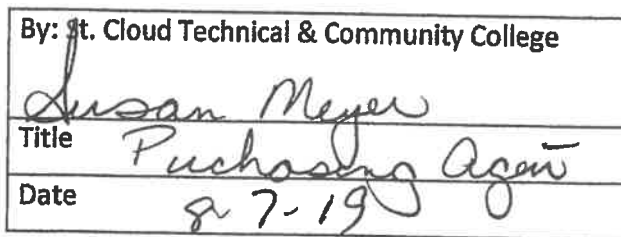 By: St. Cloud Technical & Community College
Susan Meyer
Title Puchasing Agent
Date 8-7-19